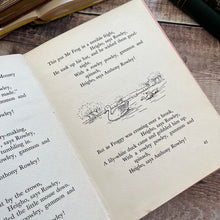 Mommy
says Rowley,
gammon and
Rowley!
-making,
says Rowley,
gammon and
Rowley!
by the crown,
Heigho, says Rowley,
the little mouse down.
Heigho,
This put Mr Frog in a terrible fright,
Heigho, says Rowley,
He took up his hat, and he wished them good-
night,
With a rowley powley, gammon and
spinach,
Heigho, says Anthony Rowley!
But as Froggy was crossing a brook,
Heigho, says Rowley,
A lily-white duck came and gobbled him up,
With a rowley powley, gammon and
spinach,
Heigho, says Anthony Rowley!